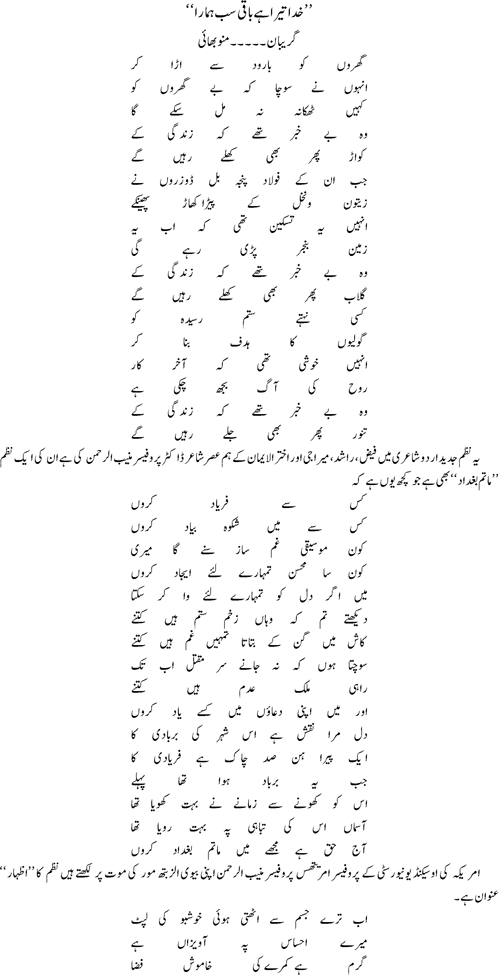 ’’خدا تیرا ہے باقی سب ہمارا‘‘
گریبان ۔۔۔۔۔ منو بھائی
گھروں کو بارود سے اڑا کر
انہوں نے سوچا کہ بے گھروں کو
کہیں ٹھکانہ نہ مل سکے گا
وہ بے خبر تھے کہ زندگی کے
کواڑ پھر بھی کھلے رہیں گے
جب ان کے فولاد پنجہ بل ڈوزروں نے
زیتون ونخل کے پیڑ اکھاڑ پھینکے
انہیں یہ تسکین تھی کہ اب یہ
زمین بنجر پڑی رہے گی
وہ بے خبر تھے کہ زندگی کے
گلاب پھر بھی کھلے رہیں گے
کسی نہتے ستم رسیدہ کو
گولیوں کا ہدف بنا کر
انہیں خوشی تھی کہ آخر کار
روح کی آگ بجھ چکی ہے
وہ بے خبر تھے کہ زندگی کے
تنور پھر بھی جلے رہیں گے
یہ نظم جدید اردو شاعری میں فیض، راشد، میراجی اور اختر الایمان کے ہم عصر شاعر ڈاکٹر پروفیسر منیب الرحمن کی ہے ان کی ایک نظم
’’ماتم بغداد‘‘ بھی ہے جو کچھ یوں ہے کہ
کس سے فریاد کروں
کس سے میں شکوہ بیاد کروں
کون موسیقی غم ساز سنے گا میری
کون سا محسن تمہارے لئے ایجاد کروں
میں اگر دل کو تمہارے لئے وا کر سکتا
دیکھتے تم کہ وہاں زخم ستم ہیں کتنے
کاش میں گن کے بتاتا تمہیں غم ہیں کتنے
سوچتا ہوں کہ نہ جانے سر مقتل اب تک
راہی ملک عدم ہیں کتنے
اور میں اپنی دعاؤں میں کسے یاد کروں
دل مرا نقش ہے اس شہر کی بربادی کا
ایک پیرا ہن صد چاک ہے فریادی کا
جب یہ برباد ہوا تھا پہلے
اس کو کھونے سے زمانے نے بہت کھویا تھا
آسماں اس کی تباہی پہ بہت رویا تھا
آج حق ہے مجھے میں ماتم بغداد کروں
امریکہ کی اوسیکنڈ یونیورسٹی کے پروفیسر امریتھس پروفیسر منیب الرحمن اپنی بیوی الزبتھ مور کی موت پر لکھتے ہیں نظم کا ’’اظہار‘‘
عنوان ہے۔
اب ترے جسم سے اٹھتی ہوئی خوشبو کی لپٹ
میرے احساس پہ آویزاں ہے
گرم ہے کمرے کی خاموش فضا